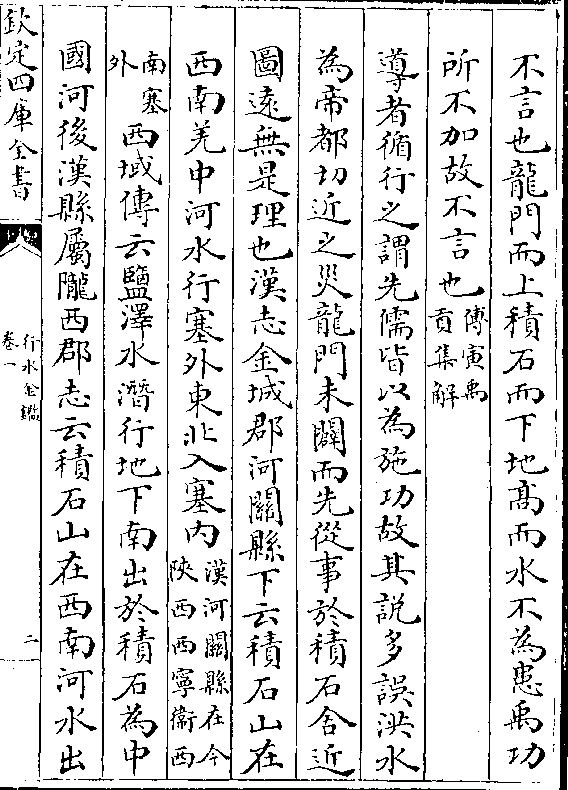 不言也龍門而上積石而下地髙而水不為患禹功
所不加故不言也傅寅禹貢集解
導者循行之謂先儒皆以為施功故其説多誤洪水
為帝都切近之災龍門未闢而先從事於積石舎近
圖遠無是理也漢志金城郡河關縣下云積石山在
西南羌中河水行塞外東北入塞内漢河關縣在今陜西西寧衛西
南塞外西域傳云鹽澤水潛行地下南出於積石為中
國河後漢縣屬隴西郡志云積石山在西南河水出
欽定四庫全書
行水金鑑
卷一
二